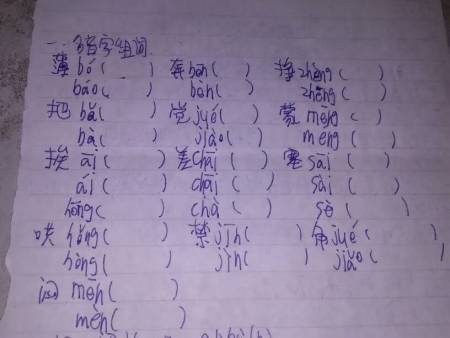 一.多音字组词.
薄 bó ( ) 奔 bēn ( ) 挣 zhèng ( )
báo ( ) bèn ( ) zhēng ( )
把 bǎ ( ) 觉 jué ( ) 蒙 mēng ( )
bà ( ) jiào ( ) méng ( )
挨 āi ( ) 差 chāi ( ) 塞 sāi ( )
ái ( ) chāi ( ) sài ( )
hōng ( ) chà ( ) sè ( )
哄 hǒng ( ) 禁 jīn ( ) 角 jué ( )
hòng ( ) jìn ( ) jiǎo ( )
闷 mēn ( )
mèn ( )